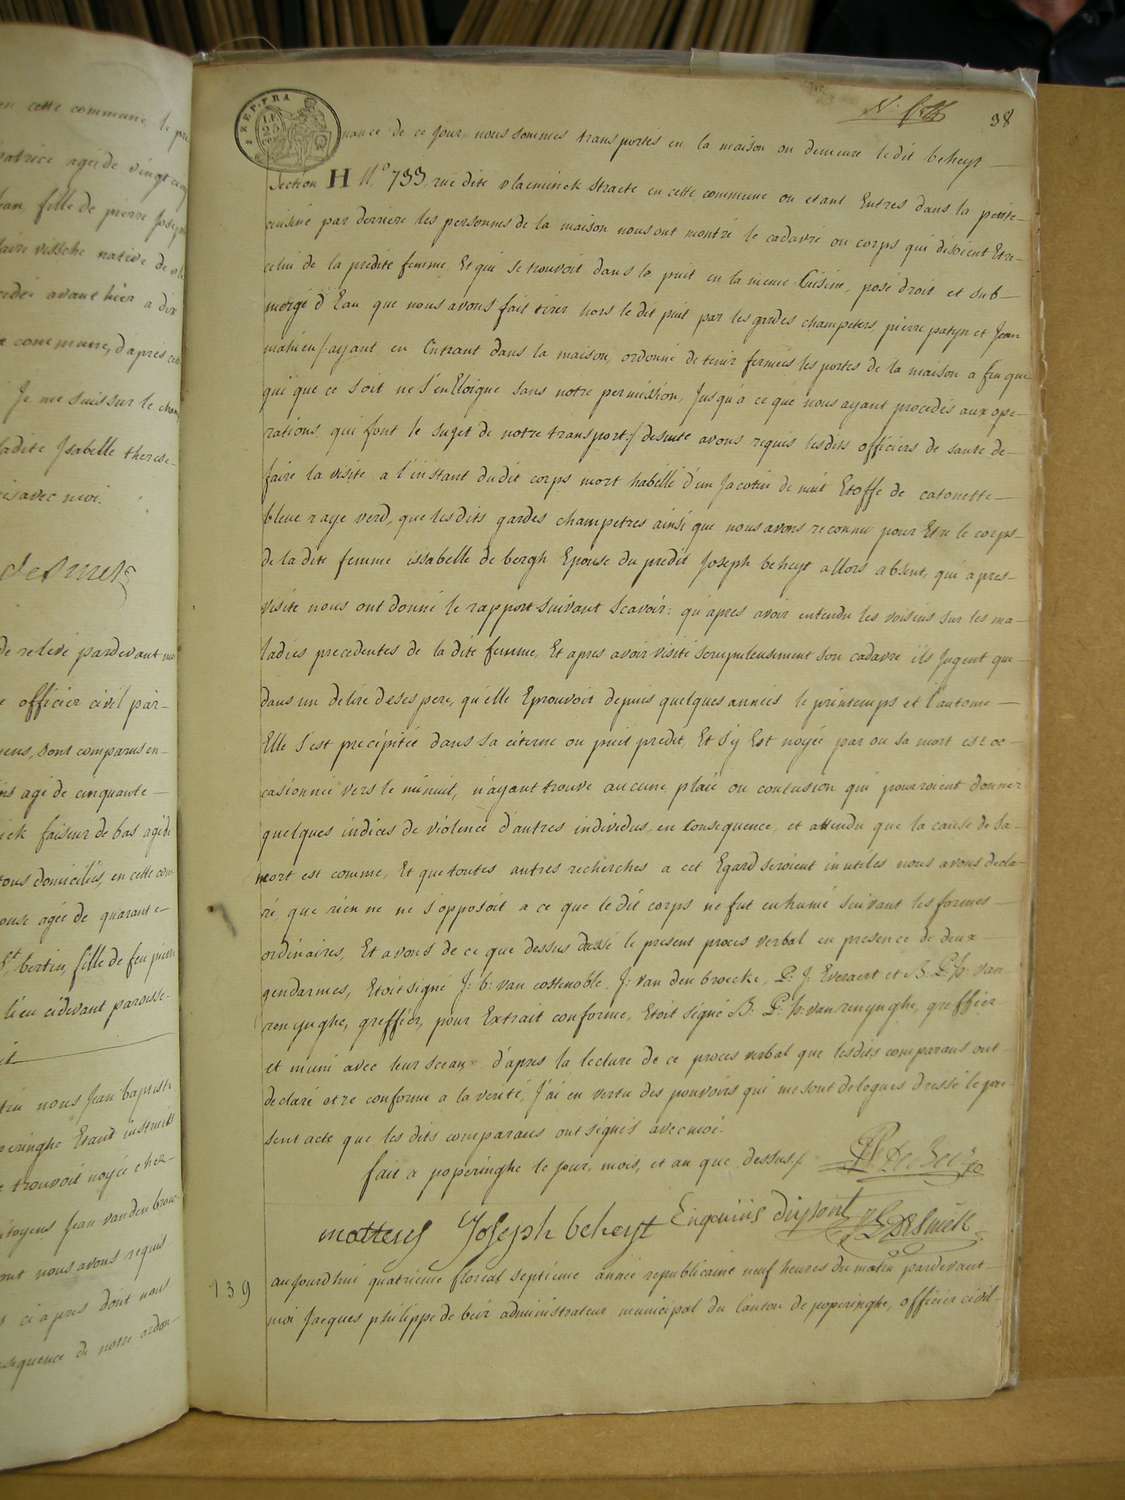 en cette commune, le pre
agée de vingt cinq
fille de pierre Joseph
vissche native de
avant hier a dix
commune, d'apres
Je me suis sur le cham
ladite Isabelle therese
avec moi.
desmet
de relevé pardevant
officier civil par-
sont comparus en-
agé de cinquante-
faiseur de bas agé de
tous domiciliés, en cette com
agée de quarante
St bertin, fille de feu pierre
lieu cidevant paroisse
nous Jean baptiste
Etant instruits
trouvoit noyée chez
Jean vanden broec
nous avons requis
ci apres dont nous
de notre ordon-
38
REP. FRA
nance de ce jour, nous sommes transportés en la maison ou demeure ledit beheyt
Section H No 733, rue dite vlaeminck straete en cette commune ou etant Entrés dans la petite
cuisine par derriere les personnes de la maison nous ont montré le cadavre ou corps qui disoient Etre
celui de la predite femme, Et qui se trouvoit dans le puit en la meme Cuisine, posé droit et sub-
mergé d'Eau que nous avons fait tirer hors le dit puit par les gardes champetres, pierre patyn et Jean
mahieu / ayant en Entrant dans la maison, ordonné de tenir fermées les portes de la maison a fin que
qui que ce soit ne s'en Eloigne sans notre permission, Jusqu'a ce que nous ayant procedés aux ope-
rations qui font le sujet de notre transport / desuite avons requis lesdits officiers de santé de
faire la visite a l'instant dudit corps mort habillé d'un Jacotin de nuit Etoffe de catonette
bleue rayé verd, que lesdits gardes champetres ainsi que nous avons reconnu pour Etre le corps
de la dite femme issabelle de bergh Epouse du predit Joseph beheyt allors absent, qui apres
visite nous ont donné le rapport suivant Scavoir: qu'apres avoir entendu les voisins sur les ma-
ladies precedentes de la dite femme, Et apres avoir visité scrupuleusement son cadavre ils Jugent que
dans un delire desespere, qu'elle Eprouvoit depuis quelques années le printemps et l'automne
Elle s'est precipitée dans sa citerne ou puit predit, Et s'y Est noyée par ou sa mort est oc-
casionnée vers le minuit, n'ayant trouvé aucune plaie ou contusion qui pourroient donner
quelques indices de violence d'autres individus, en Consequence, et attendu que la cause de sa
mort est connue, Et que toutes autres recherches a cet Egard seroient inutiles nous avons decla-
ré, que rien ne ne s'opposoit a ce que ledit corps ne fut enhumé suivant les formes
ordinaires, Et avons de ce que dessus dressé le present proces verbal en presence de deux
gendarmes, Etoit signé J: b: van costenoble, J: van den broecke, P: J. Everaert et B. P. h: van
renynghe, greffier, pour Extrait conforme, Etoit signé B: P. h: van renynghe, greffier
et muni avec leur sceau d'apres la lecture de ce proces verbal que lesdits comparans ont
declaré etre conforme a la verité, J'ai en vertu des pouvoirs qui me sont delegues dressé le pre-
sent acte que les dits comparans ont signés avec moi.
fait a poperinghe le jour, mois, et an que dessus /.
mattens Joseph beheyt Engonius dupont Desmet
139 aujourdhui quatrieme floreal septieme année republicaine neuf heures du matin pardevant
moi Jacques philippe de beir administrateur municipal du Canton de poperinghe, officier civil